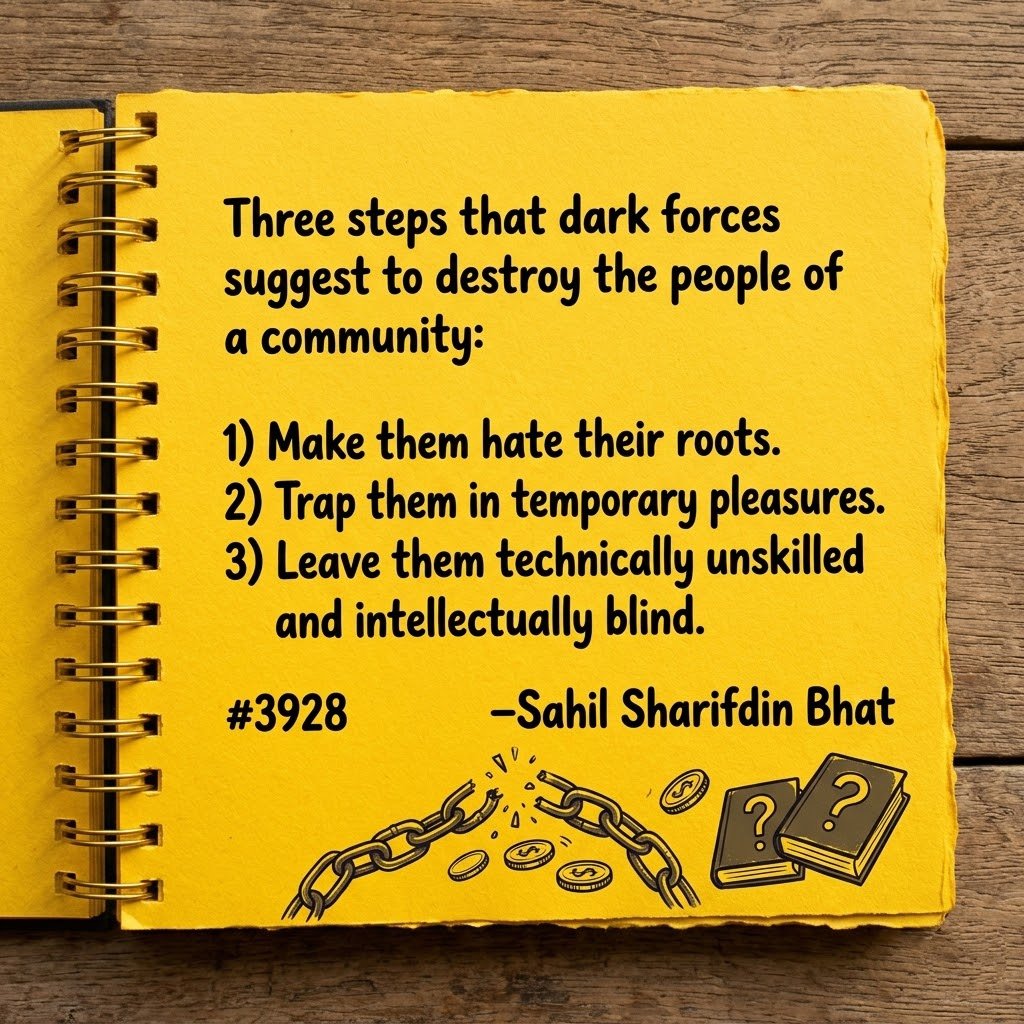 Three steps that dark forces
suggest to destroy the people of
a community:
1) Make them hate their roots.
2) Trap them in temporary pleasures.
3) Leave them technically unskilled
and intellectually blind.
#3928 –Sahil Sharifdin Bhat
? ?
$ $ $